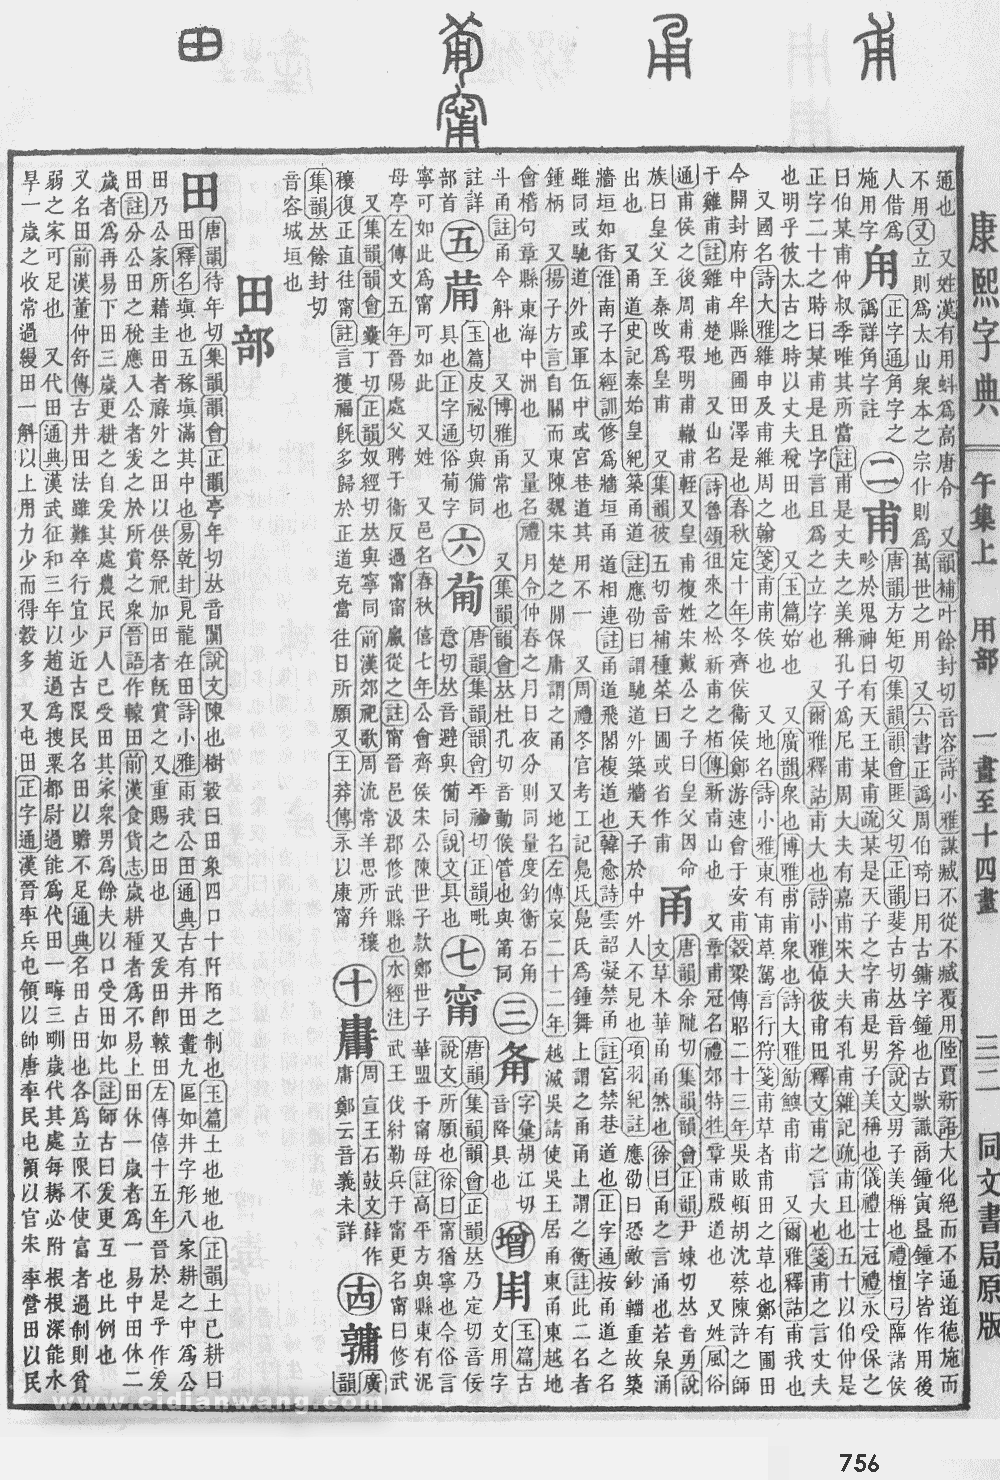 康熙字典 午集上 用部 一畫至十四畫 三二 同文書局原版
通也　又姓漢有用蚪爲高唐令　又韻補叶餘封切音容詩小雅謀臧不從不臧覆用陸賈新語大化絕而不通道德施而
不用又立則爲太山衆本之宗仆則爲萬世之用　又六書正譌周伯琦曰用古鏞字鐘也古款識商鐘寅鐘字皆作用後
人借爲
施用字
甪 正字通角字之
譌詳角字註
二
甫 唐韻方矩切集韻韻會匪父切正韻斐古切𠀤音斧說文男子美稱也禮檀弓臨諸侯
畛於鬼神曰有天王某甫疏某是天子之字甫是男子美稱也儀禮士冠禮永受保之
曰伯某甫仲叔季唯其所當註甫是丈夫之美稱孔子爲尼甫周大夫有嘉甫宋大夫有孔甫雜記疏甫且也五十以伯仲是
正字二十之時曰某甫是且字言且爲之立字也　又爾雅釋詁甫大也詩小雅倬彼甫田釋文甫之言大也箋甫之言丈夫
也明乎彼太古之時以丈夫稅田也　又玉篇始也　又廣韻衆也博雅甫甫衆也詩大雅魴鱮甫甫　又爾雅釋詁甫我也
又國名詩大雅維申及甫維周之翰箋甫甫侯也　又地名詩小雅東有甫草駕言行狩箋甫草者甫田之草也鄭有圃田
今開封府中牟縣西圃田澤是也春秋定十年冬齊侯衞侯鄭游速會于安甫穀梁傳昭二十三年吳敗頓胡沈蔡陳許之師
于雞甫註雞甫楚地　又山名詩魯頌徂來之松新甫之栢傳新甫山也　又章甫冠名禮郊特牲章甫殷道也　又姓風俗
通甫侯之後周甫瑕明甫轍甫輊又皇甫複姓宋戴公之子曰皇父因命
族曰皇父至秦攺爲皇甫　又集韻彼五切音補種菜曰圃或省作甫
甬 唐韻余隴切集韻韻會正韻尹竦切𠀤音勇說
文草木華甬甬然也徐曰甬之言涌也若泉涌
出也　又甬道史記秦始皇紀築甬道註應劭曰謂馳道外築牆天子於中外人不見也項羽紀註應劭曰恐敵鈔輜重故築
牆垣如街淮南子本經訓修爲牆垣甬道相連註甬道飛閣複道也韓愈詩雲韶凝禁甬註宮禁巷道也正字通按甬道之名
雖同或馳道外或軍伍中或宮巷道其用不一　又周禮冬官考工記鳧氏鳧氏爲鍾舞上謂之甬甬上謂之衡註此二名者
鍾柄　又揚子方言自關而東陳魏宋楚之閒保庸謂之甬　又地名左傳哀二十二年越滅吳請使吳王居甬東甬東越地
會稽句章縣東海中洲也　又量名禮月令仲春之月日夜分則同度量鈞衡石角
斗甬註甬今斛也　又博雅甬常也　又集韻韻會𠀤杜孔切音動候管也與筩同
三
字彙胡江切
音降具也
增
玉篇古
文用字
註詳
部首
五
玉篇皮祕切與備同
具也正字通俗葡字
六
葡 唐韻集韻韻會平祕切正韻毗
意切𠀤音避與備同說文具也
七
甯 唐韻集韻韻會正韻𠀤乃定切音佞
說文所願也徐曰甯猶寧也今俗言
寧可如此爲甯可如此　又姓　又邑名春秋僖七年公會齊侯宋公陳世子款鄭世子華盟于甯母註高平方與縣東有泥
母亭左傳文五年晉陽處父聘于衞反過甯甯嬴從之註甯晉邑汲郡修武縣也水經注武王伐紂勒兵于甯更名甯曰修武
又集韻韻會囊丁切正韻奴經切𠀤與寧同前漢郊祀歌周流常羊思所幷穰
穰復正直往甯註言獲福旣多歸於正道克當往日所願又王莽傳永以康甯
十
周宣王石鼓文薛作
庸鄭云音義未詳
廣
韻
集韻𠀤餘封切
音容城垣也
田部
田 唐韻待年切集韻韻會正韻亭年切𠀤音闐說文陳也樹穀曰田象四口十阡陌之制也玉篇土也地也正韻土已耕曰
田釋名塡也五稼塡滿其中也易乾卦見龍在田詩小雅雨我公田通典古有井田畫九區如井字形八家耕之中爲公
田乃公家所藉圭田者祿外之田以供祭祀加田者旣賞之又重賜之田也　又爰田卽轅田左傳僖十五年晉於是乎作爰
田註分公田之稅應入公者爰之於所賞之衆晉語作轅田前漢食貨志歲耕種者爲不易上田休一歲者爲一易中田休二
歲者爲再易下田三歲更耕之自爰其處農民戸人己受田其家衆男爲餘夫以口受田如比註師古曰爰更互也比例也
又名田前漢董仲舒傳古井田法雖難卒行宜少近古限民名田以贍不足通典名田占田也各爲立限不使富者過制則貧
弱之家可足也　又代田通典漢武征和三年以趙過爲搜粟都尉過能爲代田一畮三甽歲代其處每耨必附根根深能水
旱一歲之收常過縵田一斛以上用力少而得穀多　又屯田正字通漢晉率兵屯領以帥唐率民屯領以官宋率營田以民
www.cidianwang.com
756